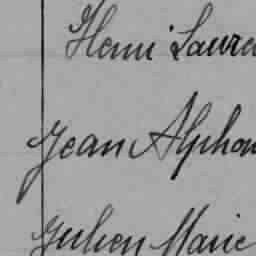 Henri Laure
Jean Alphon
Julien Marie